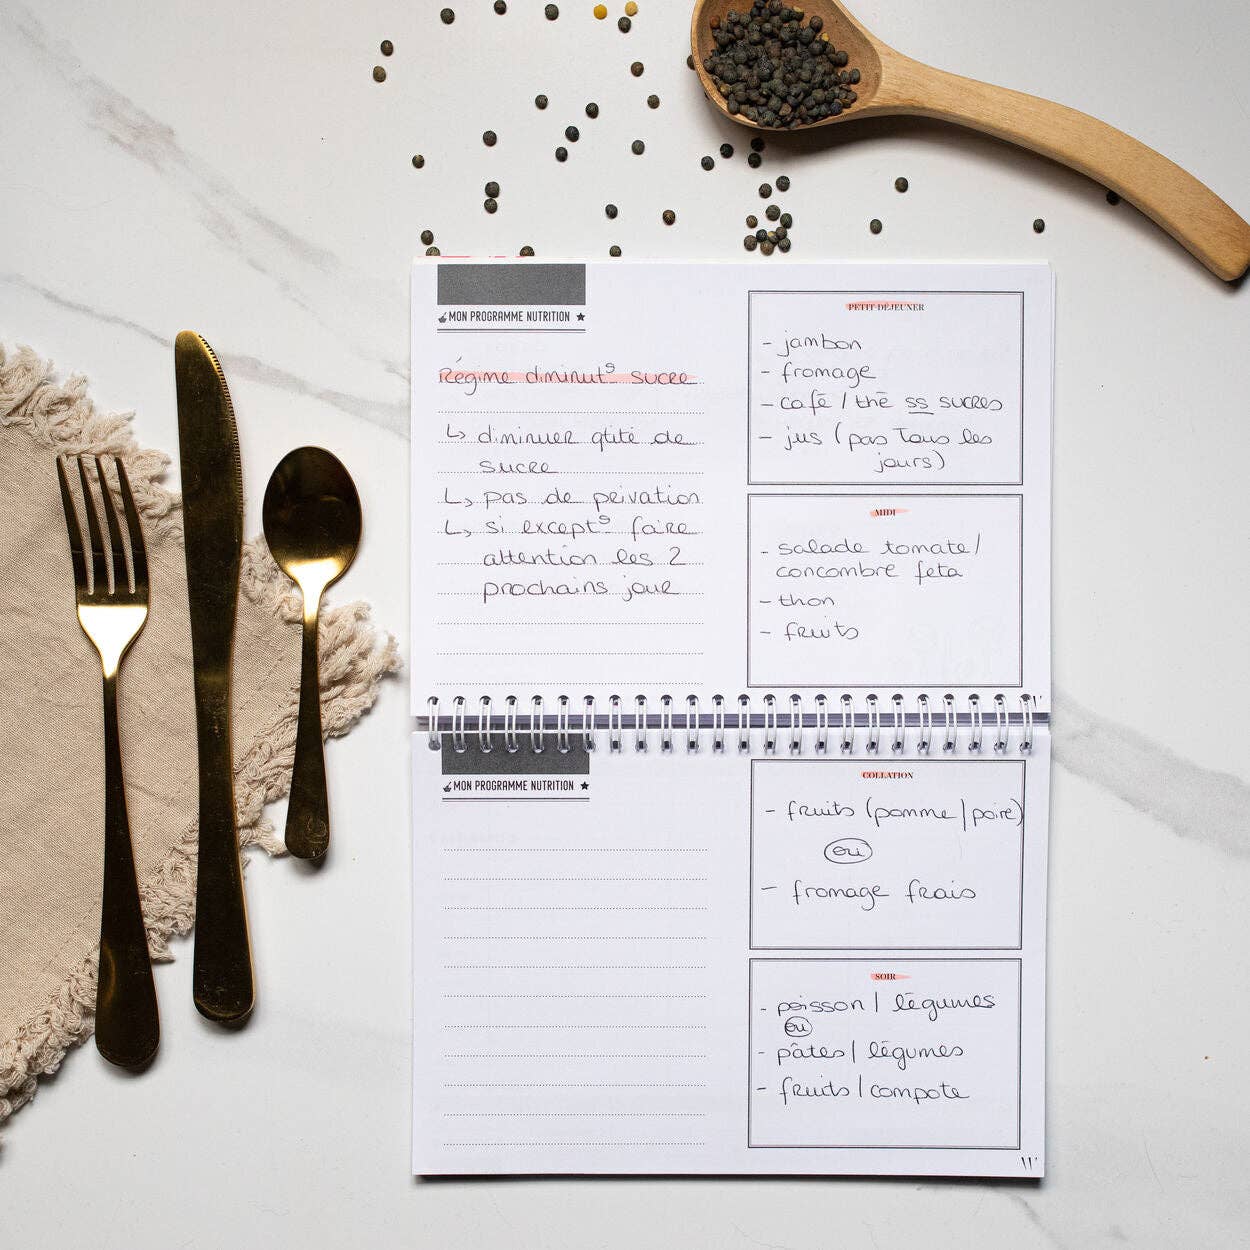 MON PROGRAMME NUTRITION
Régime diminutº sucre
↳ diminuer qtité de
sucre
↳ pas de privation
↳ si exceptº faire
attention les 2
prochains jour
PETIT-DÉJEUNER
- jambon
- fromage
- café / thé ss sucres
- jus (pas tous les
jours)
MIDI
- salade tomate/
concombre feta
- thon
- fruits
MON PROGRAMME NUTRITION
COLLATION
- fruits (pomme/poire)
ou
- fromage frais
SOIR
- poisson / légumes
ou
- pâtes / légumes
- fruits / compote